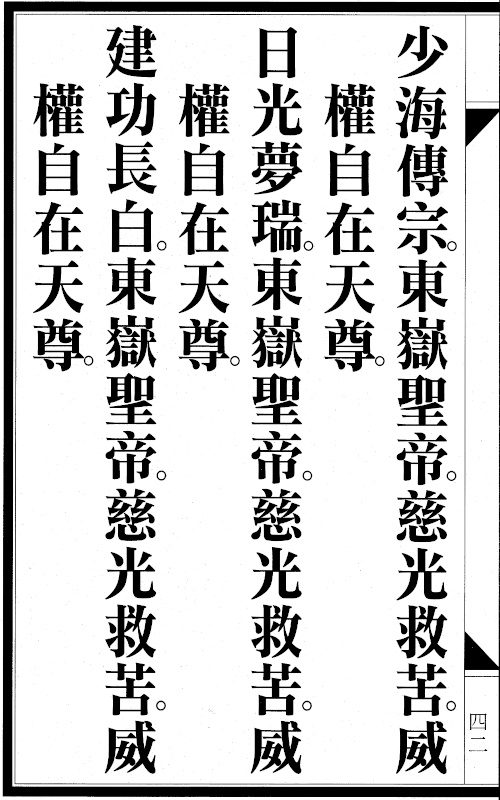 少海傳宗。東嶽聖帝。慈光救苦。威
權自在天尊。
日光夢瑞。東嶽聖帝。慈光救苦。威
權自在天尊。
建功長白。東嶽聖帝。慈光救苦。威
權自在天尊。
四二